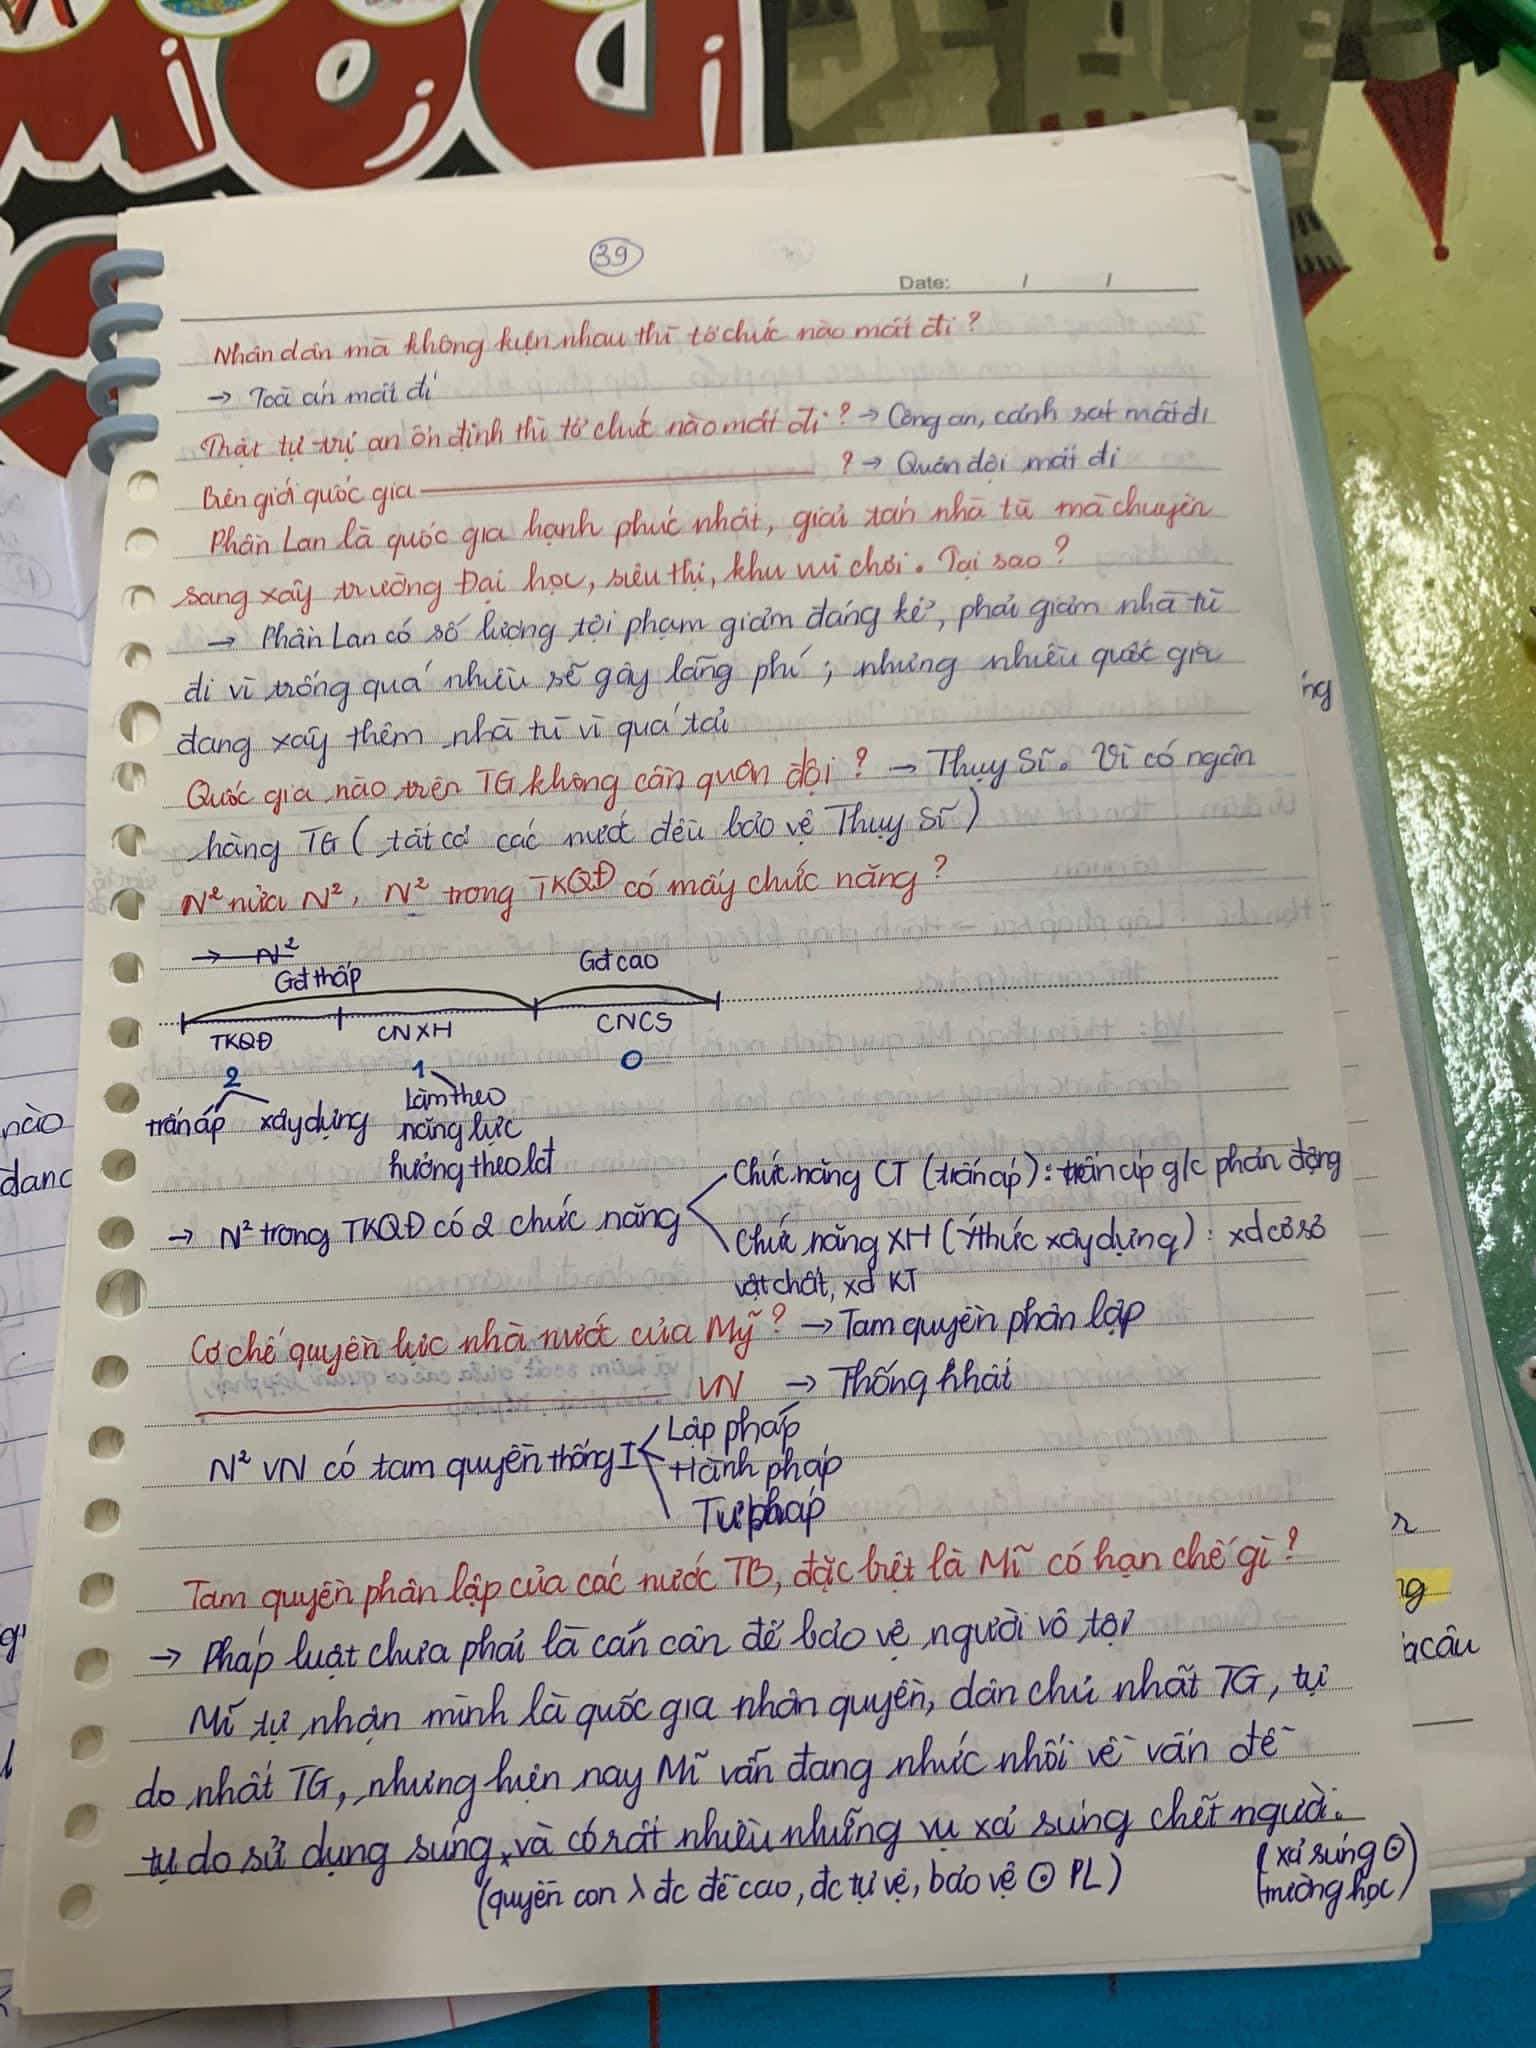 39
Date: / /
Nhân dân mà không kiện nhau thì tổ chức nào mất đi?
→ Toà án mất đi
Trật tự trị an ổn định thì tổ chức nào mất đi? → Công an, cảnh sát mất đi
Biên giới quốc gia ? → Quân đội mất đi
Phần Lan là quốc gia hạnh phúc nhất, giải tán nhà tù mà chuyển
sang xây trường Đại học, siêu thị, khu vui chơi. Tại sao?
→ Phần Lan có số lượng tội phạm giảm đáng kể, phải giảm nhà tù
đi vì trống quá nhiều sẽ gây lãng phí; nhưng nhiều quốc gia
đang xây thêm nhà tù vì quá tải
Quốc gia nào trên TG không cần quân đội? → Thụy Sĩ. Vì có ngân
hàng TG (tất cả các nước đều bảo vệ Thụy Sĩ)
N² nửa N², N² trong TKQĐ có mấy chức năng?
→ N²
Gđ thấp Gđ cao
TKQĐ CNXH CNCS
2 1 0
trấn áp xây dựng Làm theo
năng lực
hưởng theo lđ
Chức năng CT (trấn áp): trấn áp g/c phản động
→ N² trong TKQĐ có 2 chức năng
Chức năng XH (ý thức xây dựng): xd cơ sở
vật chất, xd KT
Cơ chế quyền lực nhà nước của Mỹ? → Tam quyền phân lập
VN → Thống nhất
Lập pháp
N² VN có tam quyền thống I
Hành pháp
Tư pháp
Tam quyền phân lập của các nước TB, đặc biệt là Mĩ có hạn chế gì?
→ Pháp luật chưa phải là cán cân để bảo vệ người vô tội
Mĩ tự nhận mình là quốc gia nhân quyền, dân chủ nhất TG, tự
do nhất TG, nhưng hiện nay Mĩ vẫn đang nhức nhối về vấn đề
tự do sử dụng súng, và có rất nhiều những vụ xả súng chết người.
(quyền con λ đc đề cao, đc tự vệ, bảo vệ ⊙ PL) (xả súng ⊙
trường học)
nào
dang
ng
a câu